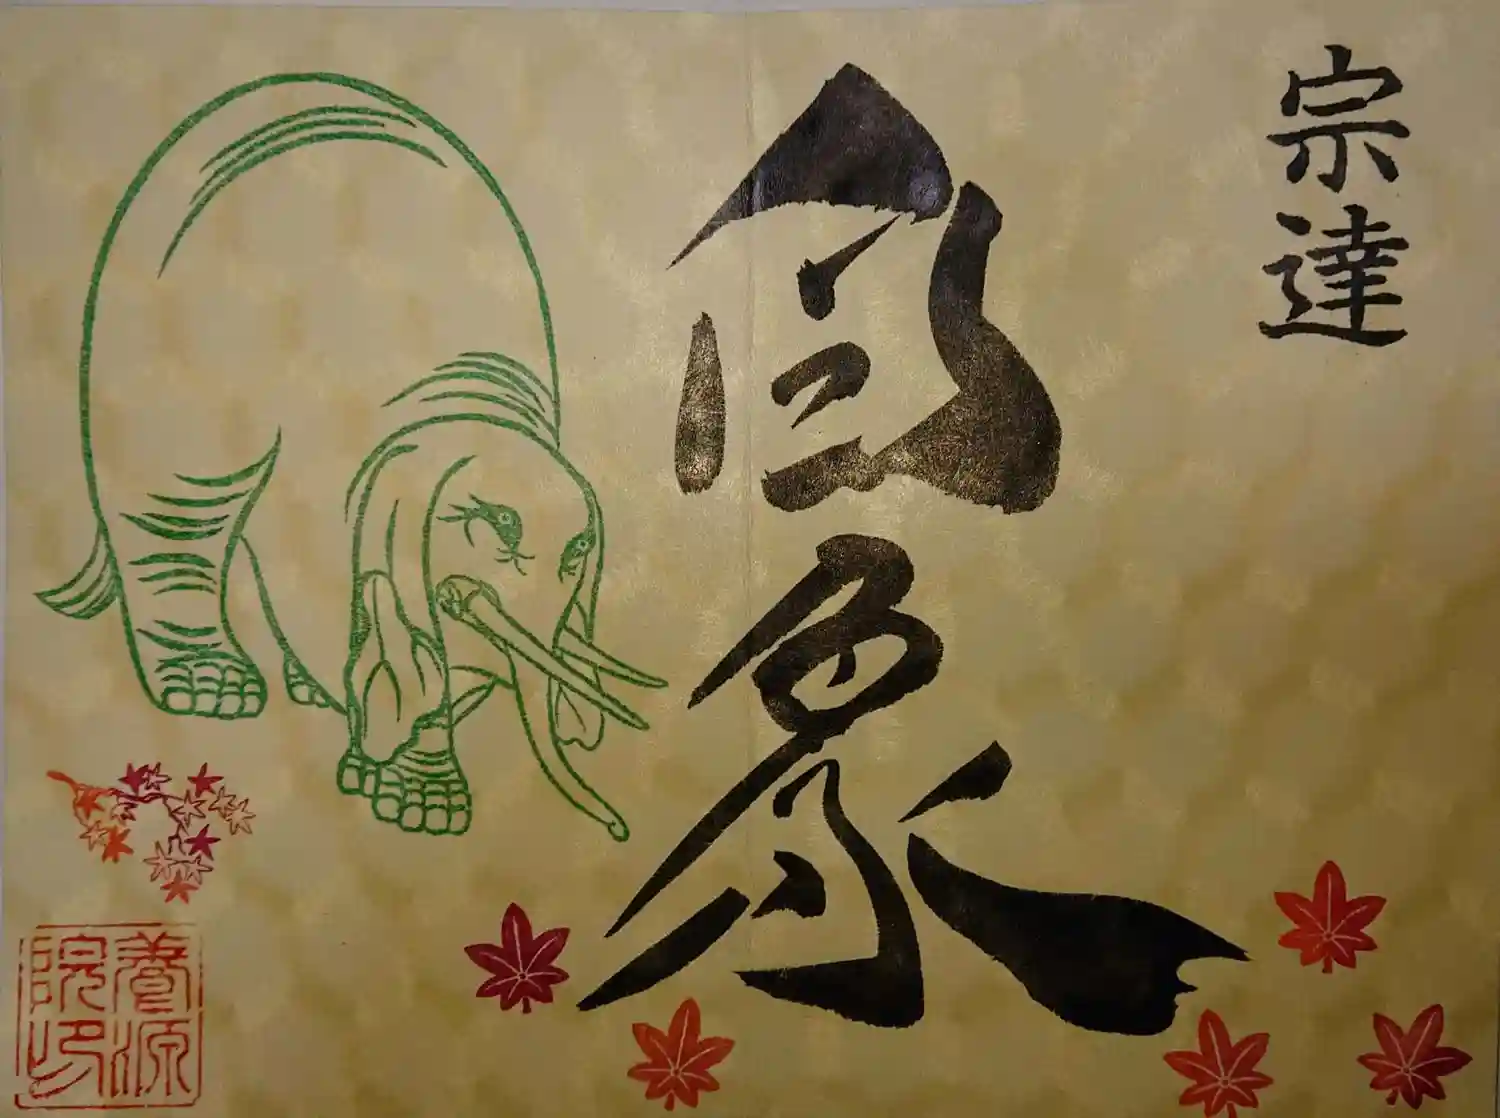 宗達
白象
養源
院印